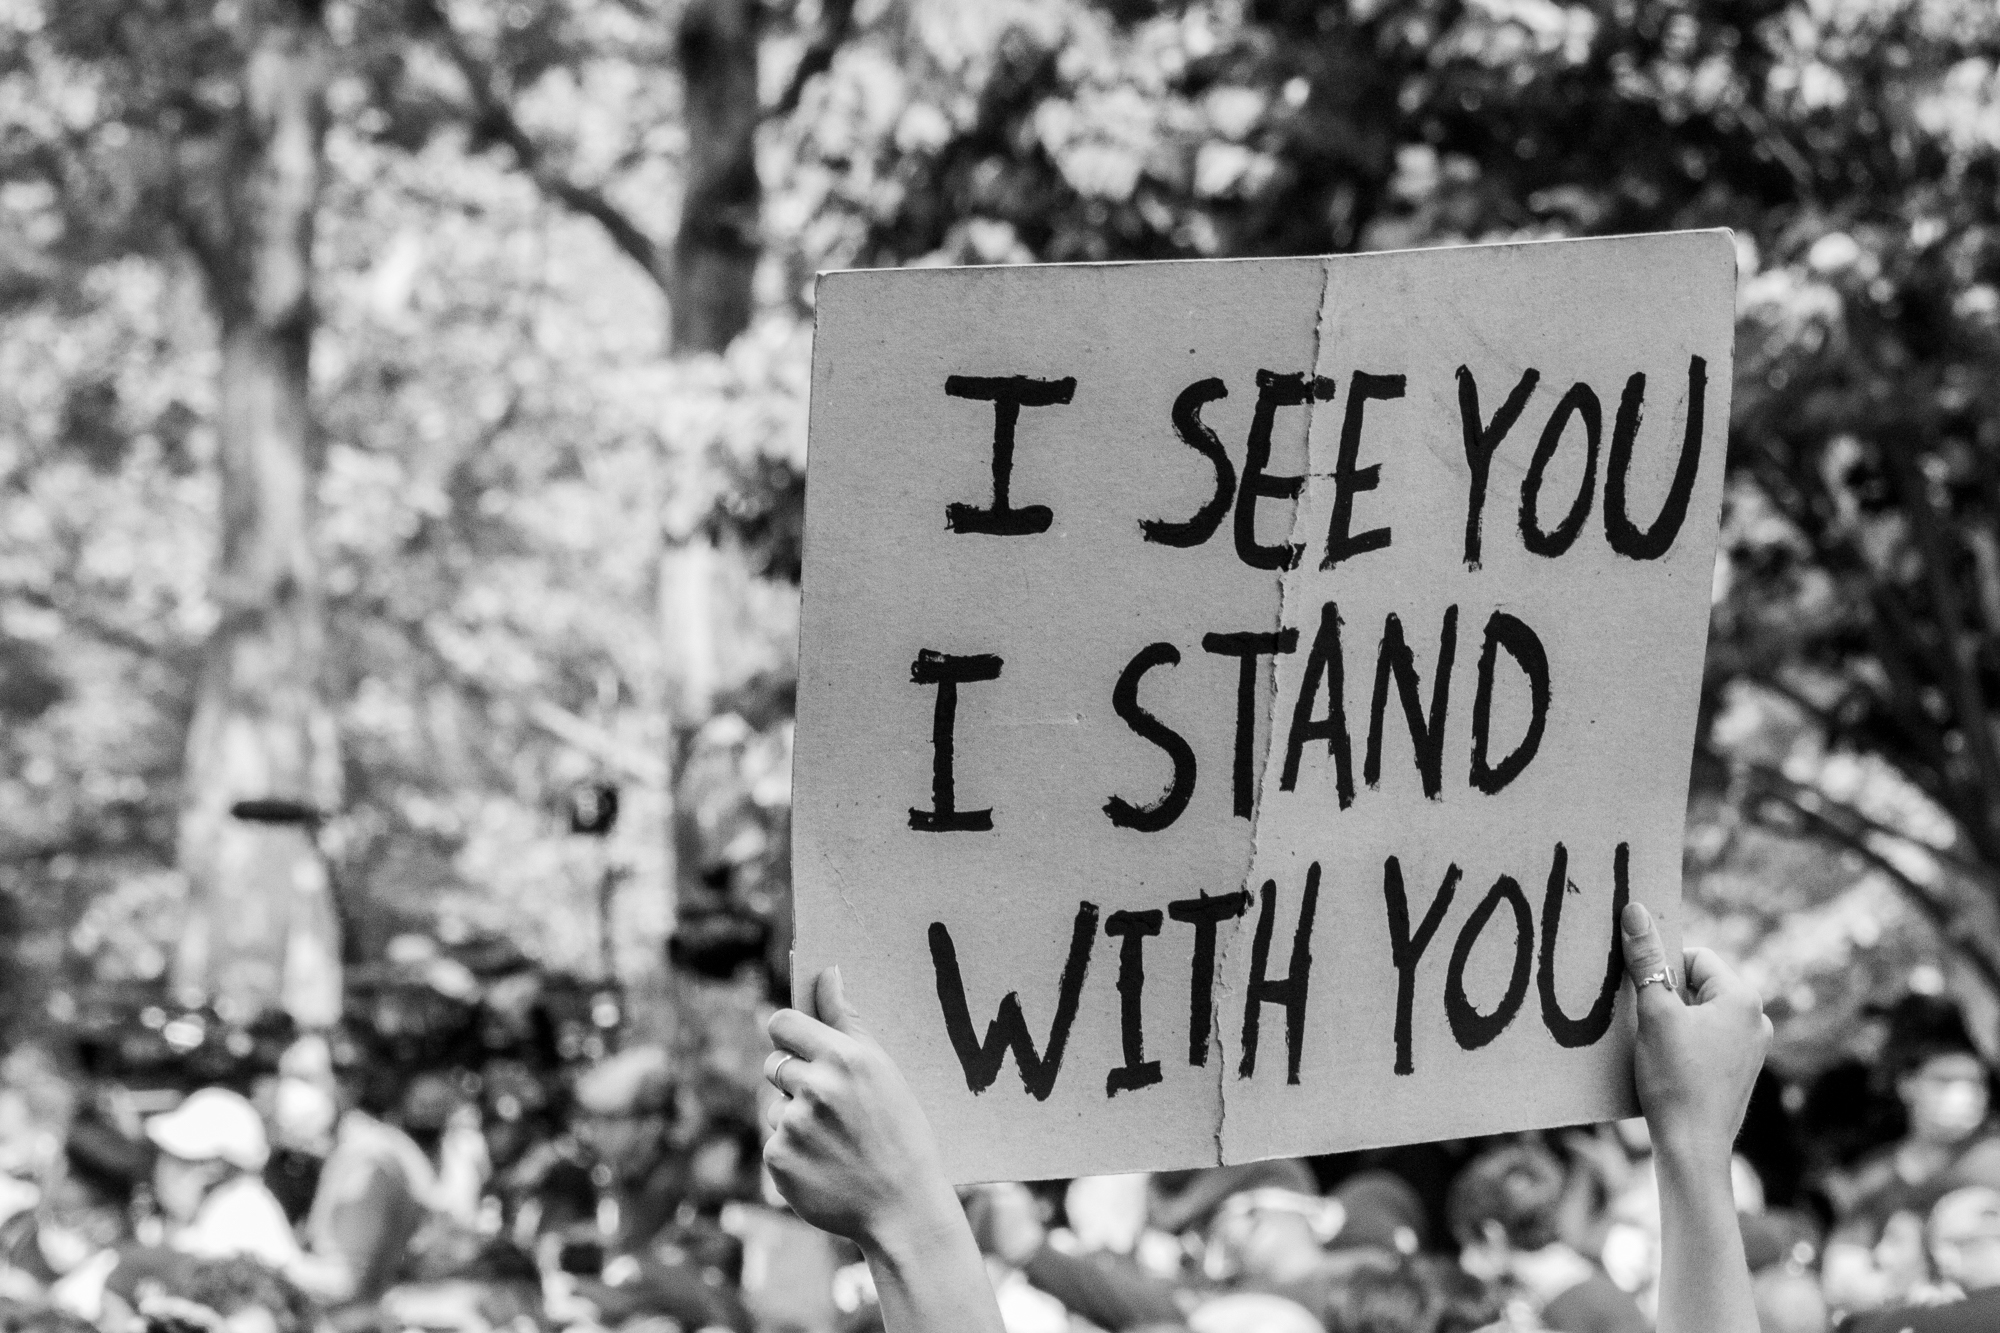 I SEE YOU
I STAND
WITH YOU